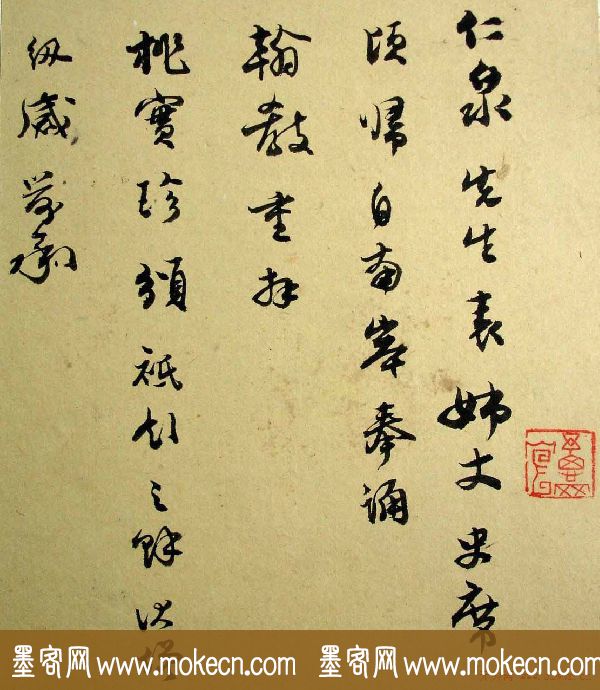 仁泉先生表姊丈史席
顷歸自南岸奉诵
翰教重拜
桃實珍頒祗紉之餘
纫感前承
墨客网 www.mokecn.com 墨客网 www.mokecn.com